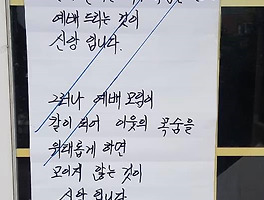 예배 드리는 것이
신앙 입니다.
그러나 예배 모임이
칼이 되어 이웃의 목숨을
위태롭게 하면
모이지 않는 것이
신앙 입니다